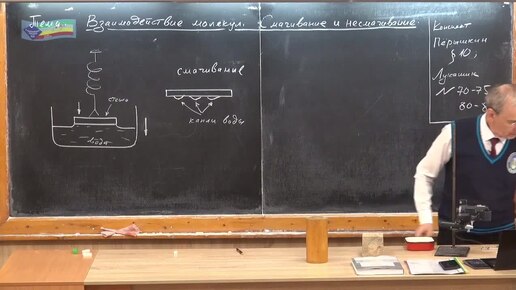 Тема. Взаимодействие молекул. Смачивание и несмачивание.
стекло
вода
смачивание
капли воды
Конспект
Пёрышкин
§ 10,
Лукашик
№ 70-75
80-